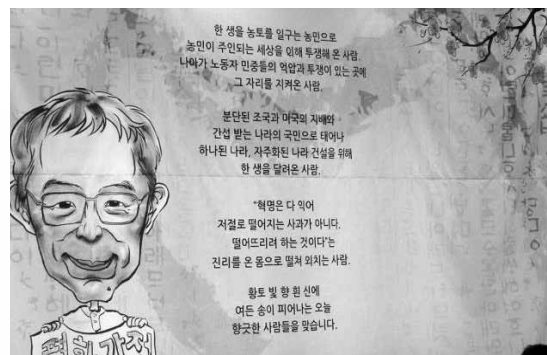 한 생을 농토를 일구는 농민으로
농민이 주인되는 세상을 위해 투쟁해 온 사람.
나아가 노동자 민중들의 억압과 투쟁이 있는 곳에
그 자리를 지켜온 사람.
분단된 조국과 미국의 지배와
간섭 받는 나라의 국민으로 태어나
하나된 나라, 자주화된 나라 건설을 위해
한 생을 달려온 사람.
"혁명은 다 익어
저절로 떨어지는 사과가 아니다.
떨어뜨리려 하는 것이다"는
진리를 온 몸으로 떨쳐 외치는 사람.
황토 빛 향 흰 신에
여든 송이 피어나는 오늘
향긋한 사람들을 맞습니다.